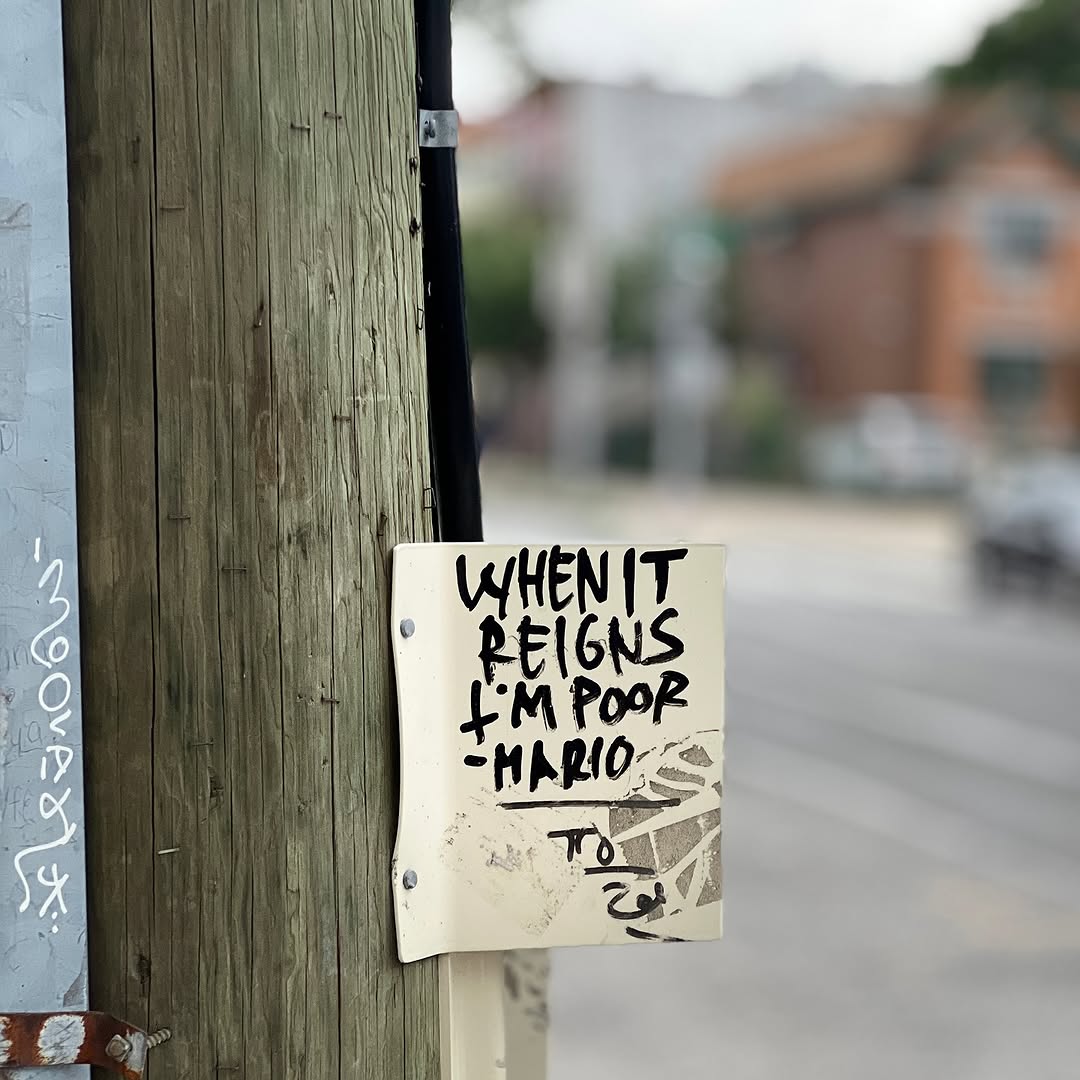 WHEN IT
REIGNS
I'M POOR
-MARIO